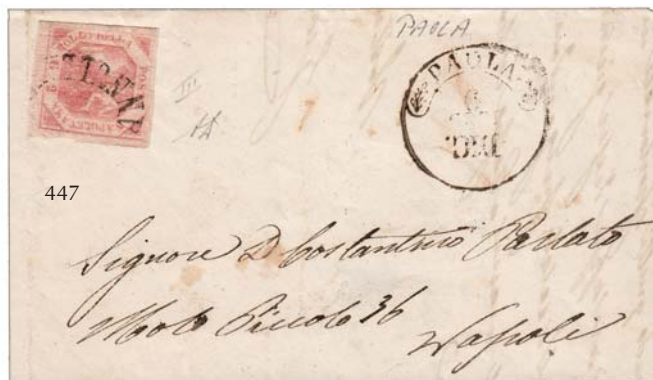 PAOLA
PAOLA
6
DIC.
447
Signore D Costantino Parlato
Molo Piccolo 36
Napoli